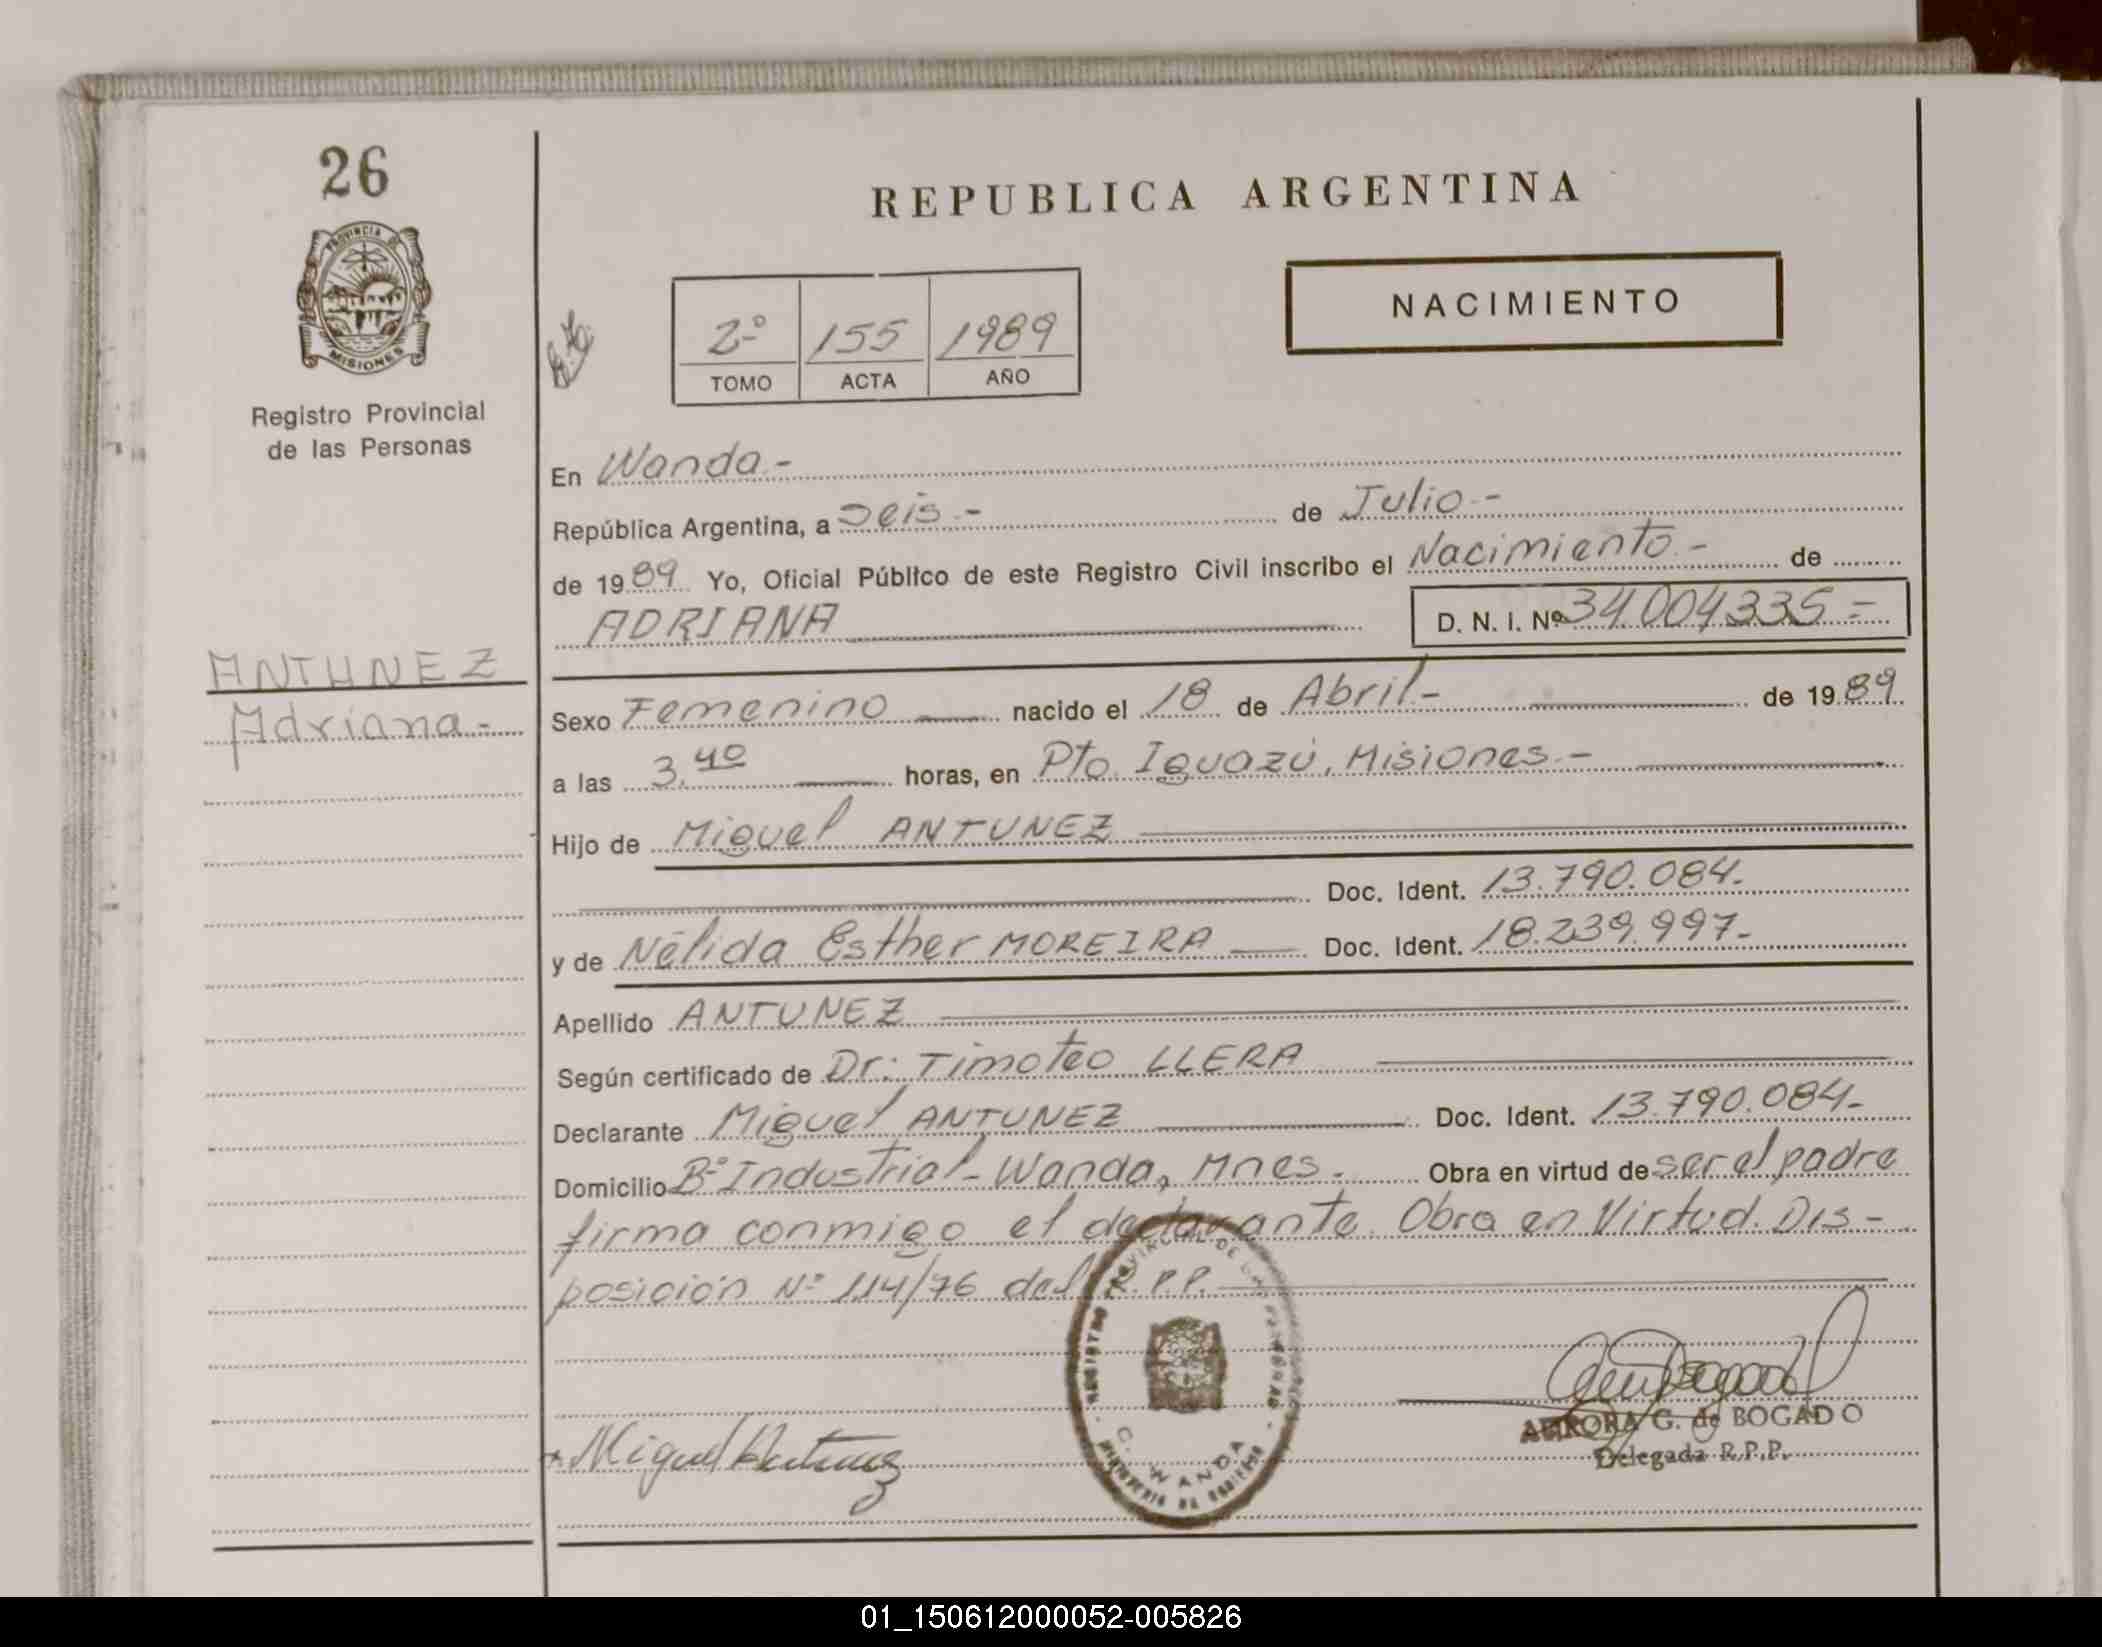 26
PROVINCIA DE
MISIONES
Registro Provincial
de las Personas
ANTUNEZ
Adriana.-
REPUBLICA ARGENTINA
NACIMIENTO
2º 155 1989
TOMO ACTA AÑO
En Wanda.-
República Argentina, a Seis.- de Julio.-
de 1989 Yo, Oficial Público de este Registro Civil inscribo el Nacimiento.- de
ADRIANA D. N. I. Nº 34.004335.=
Sexo Femenino nacido el 18 de Abril- de 1989
a las 3,40 horas, en Pto. Iguazú, Misiones.-
Hijo de Miguel ANTUNEZ
Doc. Ident. 13.790.084.
y de Nélida Esther MOREIRA Doc. Ident. 18.239.997-
Apellido ANTUNEZ
Según certificado de Dr: Timoteo LLERA
Declarante Miguel ANTUNEZ Doc. Ident. 13.790.084-
Domicilio Bº Industrial - Wanda, Mnes. Obra en virtud de ser el padre
firma conmigo el declarante. Obra en Virtud. Dis-
posición Nº 114/76 del R.P.P.
REGISTRO PROVINCIAL DE LAS PERSONAS
C. WANDA
MINISTERIO DE GOBIERNO
Miguel Antunez
AURORA G. de BOGADO
Delegada R.P.P.
01_150612000052-005826